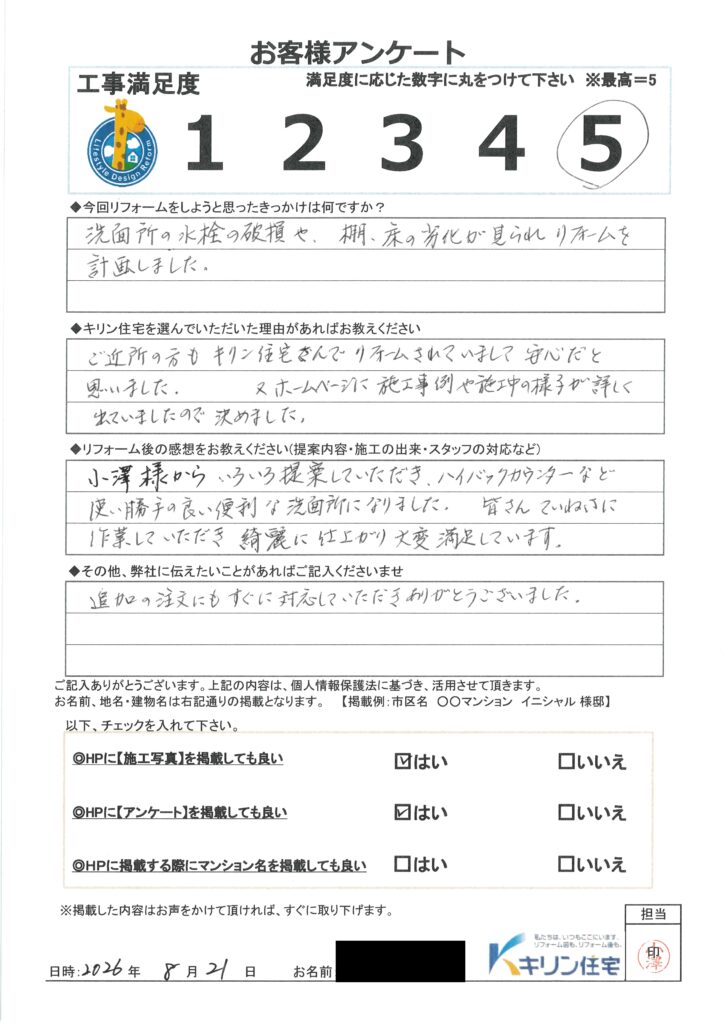 お客様アンケート
工事満足度
満足度に応じた数字に丸をつけて下さい ※最高＝5
Lifestyle Design Reform
1 2 3 4 5
◆今回リフォームをしようと思ったきっかけは何ですか？
洗面所の水栓の破損や、棚、床の劣化が見られリフォームを
計画しました。
◆キリン住宅を選んでいただいた理由があればお教えください
ご近所の方もキリン住宅さんでリフォームされていまして安心だと
思いました。 又ホームページに施工事例や施工中の様子が詳しく
出ていましたので決めました。
◆リフォーム後の感想をお教えください(提案内容・施工の出来・スタッフの対応など)
小澤様からいろいろ提案していただき、ハイバックカウンターなど
使い勝手の良い便利な洗面所になりました。 皆さんていねいに
作業していただき綺麗に仕上がり大変満足しています。
◆その他、弊社に伝えたいことがあればご記入くださいませ
追加の注文にもすぐに対応していただきありがとうございました。
ご記入ありがとうございます。上記の内容は、個人情報保護法に基づき、活用させて頂きます。
お名前、地名・建物名は右記通りの掲載となります。 【掲載例：市区名 〇〇マンション イニシャル 様邸】
以下、チェックを入れて下さい。
◎HPに【施工写真】を掲載しても良い ☑はい □いいえ
◎HPに【アンケート】を掲載しても良い ☑はい □いいえ
◎HPに掲載する際にマンション名を掲載しても良い □はい □いいえ
※掲載した内容はお声をかけて頂ければ、すぐに取り下げます。
担当
印
小澤
私たちは、いつもここにいます。
リフォーム前も、リフォーム後も。
キリン住宅
日時：2026年 8月21日 お名前